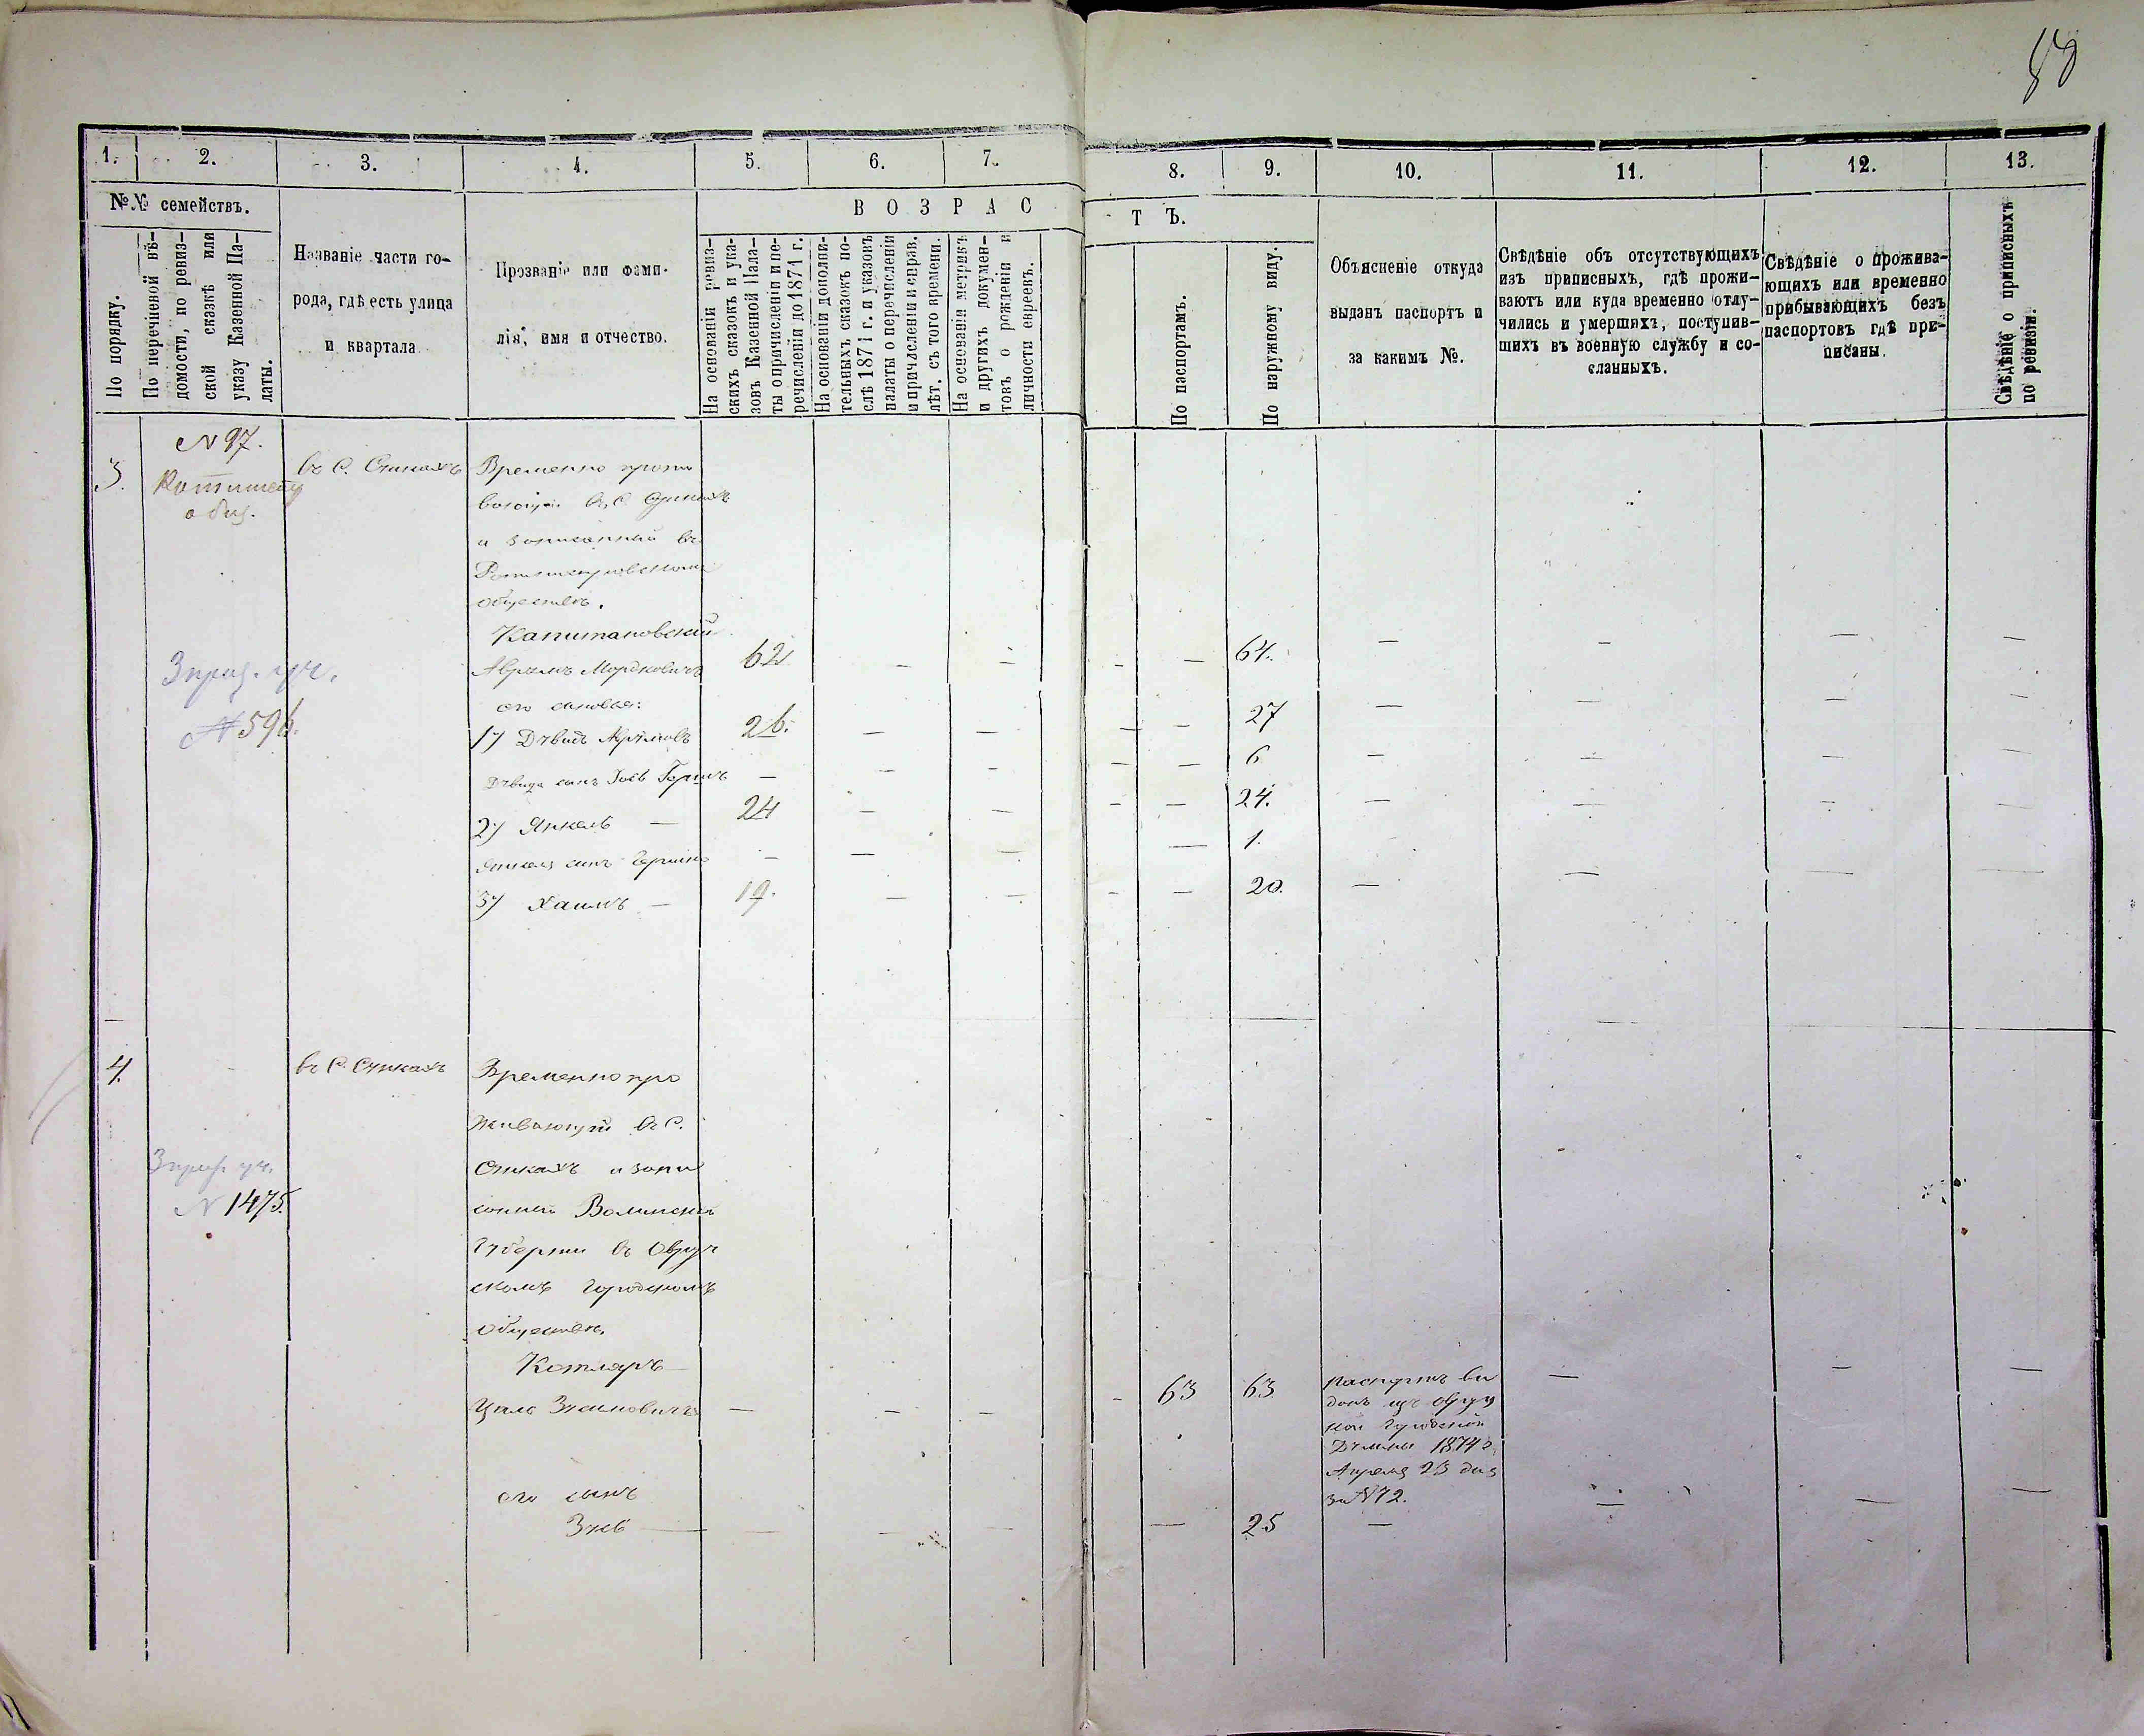 1.
2.
3.
4.
5.
6.
7.
8.
9.
10.
11.
12.
13.
№№ семействъ.
По порядку.
По перечневой вѣ-
домости, по ревиз-
ской сказкѣ или
указу Казенной Па-
латы.
Названіе части го-
рода, гдѣ есть улица
и квартала
Прозваніе или фами-
лія, имя и отчество.
ВОЗРАС
ТЪ.
На основаніи ревиз-
скихъ сказокъ и ука-
зовъ Казенной Пала-
ты о причисленіи и пе-
речисленіи до 1871 г.
На основаніи дополни-
тельныхъ сказокъ по-
слѣ 1871 г. и указовъ
палаты о перечисленіи
и причисленіи и справ.
лѣт. съ того времени.
На основаніи метрикъ
и другихъ докумен-
товъ о рожденіи и
личности евреевъ.
По паспортамъ.
По наружному виду.
Объясненіе откуда
выданъ паспортъ и
за какимъ №.
Свѣдѣніе объ отсутствующихъ
изъ приписныхъ, гдѣ прожи-
ваютъ или куда временно отлу-
чились и умершихъ, поступив-
шихъ въ военную службу и со-
сланныхъ.
Свѣдѣніе о прожива-
ющихъ или временно
прибывающихъ безъ
паспортовъ гдѣ при-
писаны.
Свѣдѣніе о приписныхъ
по ревизіи.
3.
N 97.
общ.
3 приз. уч.
N 596.
въ С.
Временно
въ С.
и записанный въ
обществѣ.
Капитановскій
Аврамъ Мордковичъ
62
64.
его сыновья:
1) Дувидъ Аврамовъ
26.
27
Дувида сынъ Іосъ Гершъ
—
6
2) Янкель —
24
24.
Янкеля сынъ
—
1.
3) Хаимъ —
19.
20.
4.
въ С.
Временно про
живающій въ С.
и запи
санный Волынской
Губерніи въ Овруч
скомъ Городскомъ
обществѣ.
3 приз. уч.
N 1475.
Котляръ
—
63
63
его сынъ
—
25
Паспортъ вы
данъ изъ Овруч
кой Городской
Думы 1874 г.
Апреля 23 дня
за N 72.